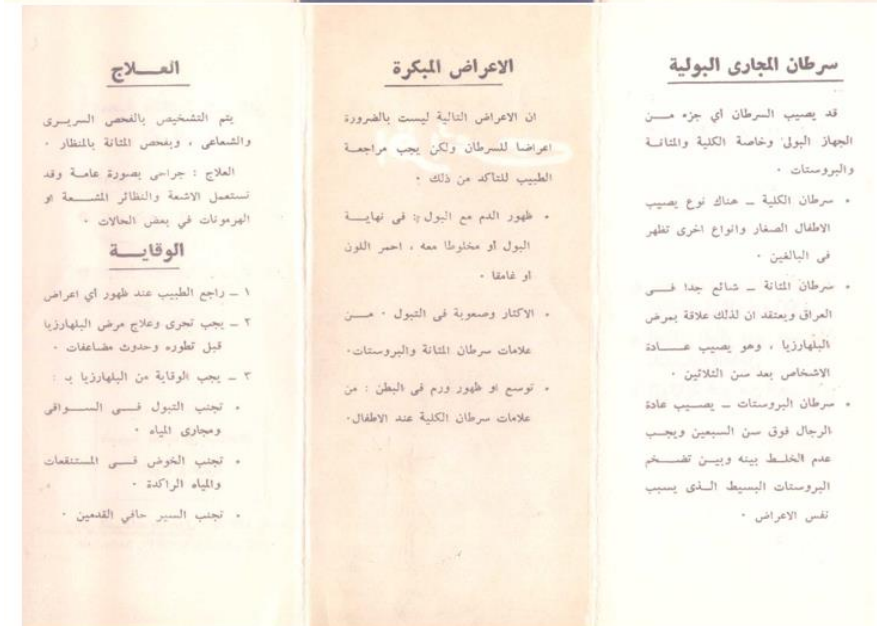 سرطان المجارى البولية
قد يصيب السرطان أي جزء مـــن
الجهاز البولى وخاصة الكلية والمثانـة
والبروستات ٠
• سرطان الكلية ــ هناك نوع يصيب
الاطفال الصغار وانواع اخرى تظهر
فى البالغين ٠
• سرطان المثانة ــ شائع جدا فـــى
العراق ويعتقد ان لذلك علاقة بمرض
البلهارزيا ، وهو يصيب عـــادة
الاشخاص بعد سن الثلاثين ٠
• سرطان البروستات ــ يصــيب عادة
الرجال فوق سن السبعين ويجـب
عدم الخلــط بينه وبيــن تضــخم
البروستات البسيط الــذى يسبب
نفس الاعراض ٠
الاعراض المبكرة
ان الاعراض التالية ليست بالضرورة
اعراضا للسرطان ولكن يجب مراجعـة
الطبيب للتاكد من ذلك ٠
• ظهور الدم مع البول : فى نهايــة
البول أو مخلوطا معه ، احمر اللون
او غامقا ٠
• الاكثار وصعوبة فى التبول ٠ مـــن
علامات سرطان المثانة والبروستات٠
• توسع او ظهور ورم فى البطن : من
علامات سرطان الكلية عند الاطفال٠
العـــلاج
يتم التشخيص بالفحص السريــرى
والشعاعى ، وبفحص المثانة بالمنظار ٠
العلاج : جراحي بصورة عامـة وقد
تستعمل الاشعة والنظائر المشــعة او
الهرمونات في بعض الحالات ٠
الوقايـــة
١ ــ راجع الطبيب عند ظهور أي اعراض
٢ ــ يجب تحرى وعلاج مرض البلهارزيا
قبل تطوره وحدوث مضاعفات ٠
٣ ــ يجب الوقاية من البلهارزيا بـ :
• تجنب التبول فـــى الســـواقى
ومجارى المياه ٠
• تجنب الخوض فـــى المستنقعات
والمياه الراكدة ٠
• تجنب السير حافي القدمين ٠